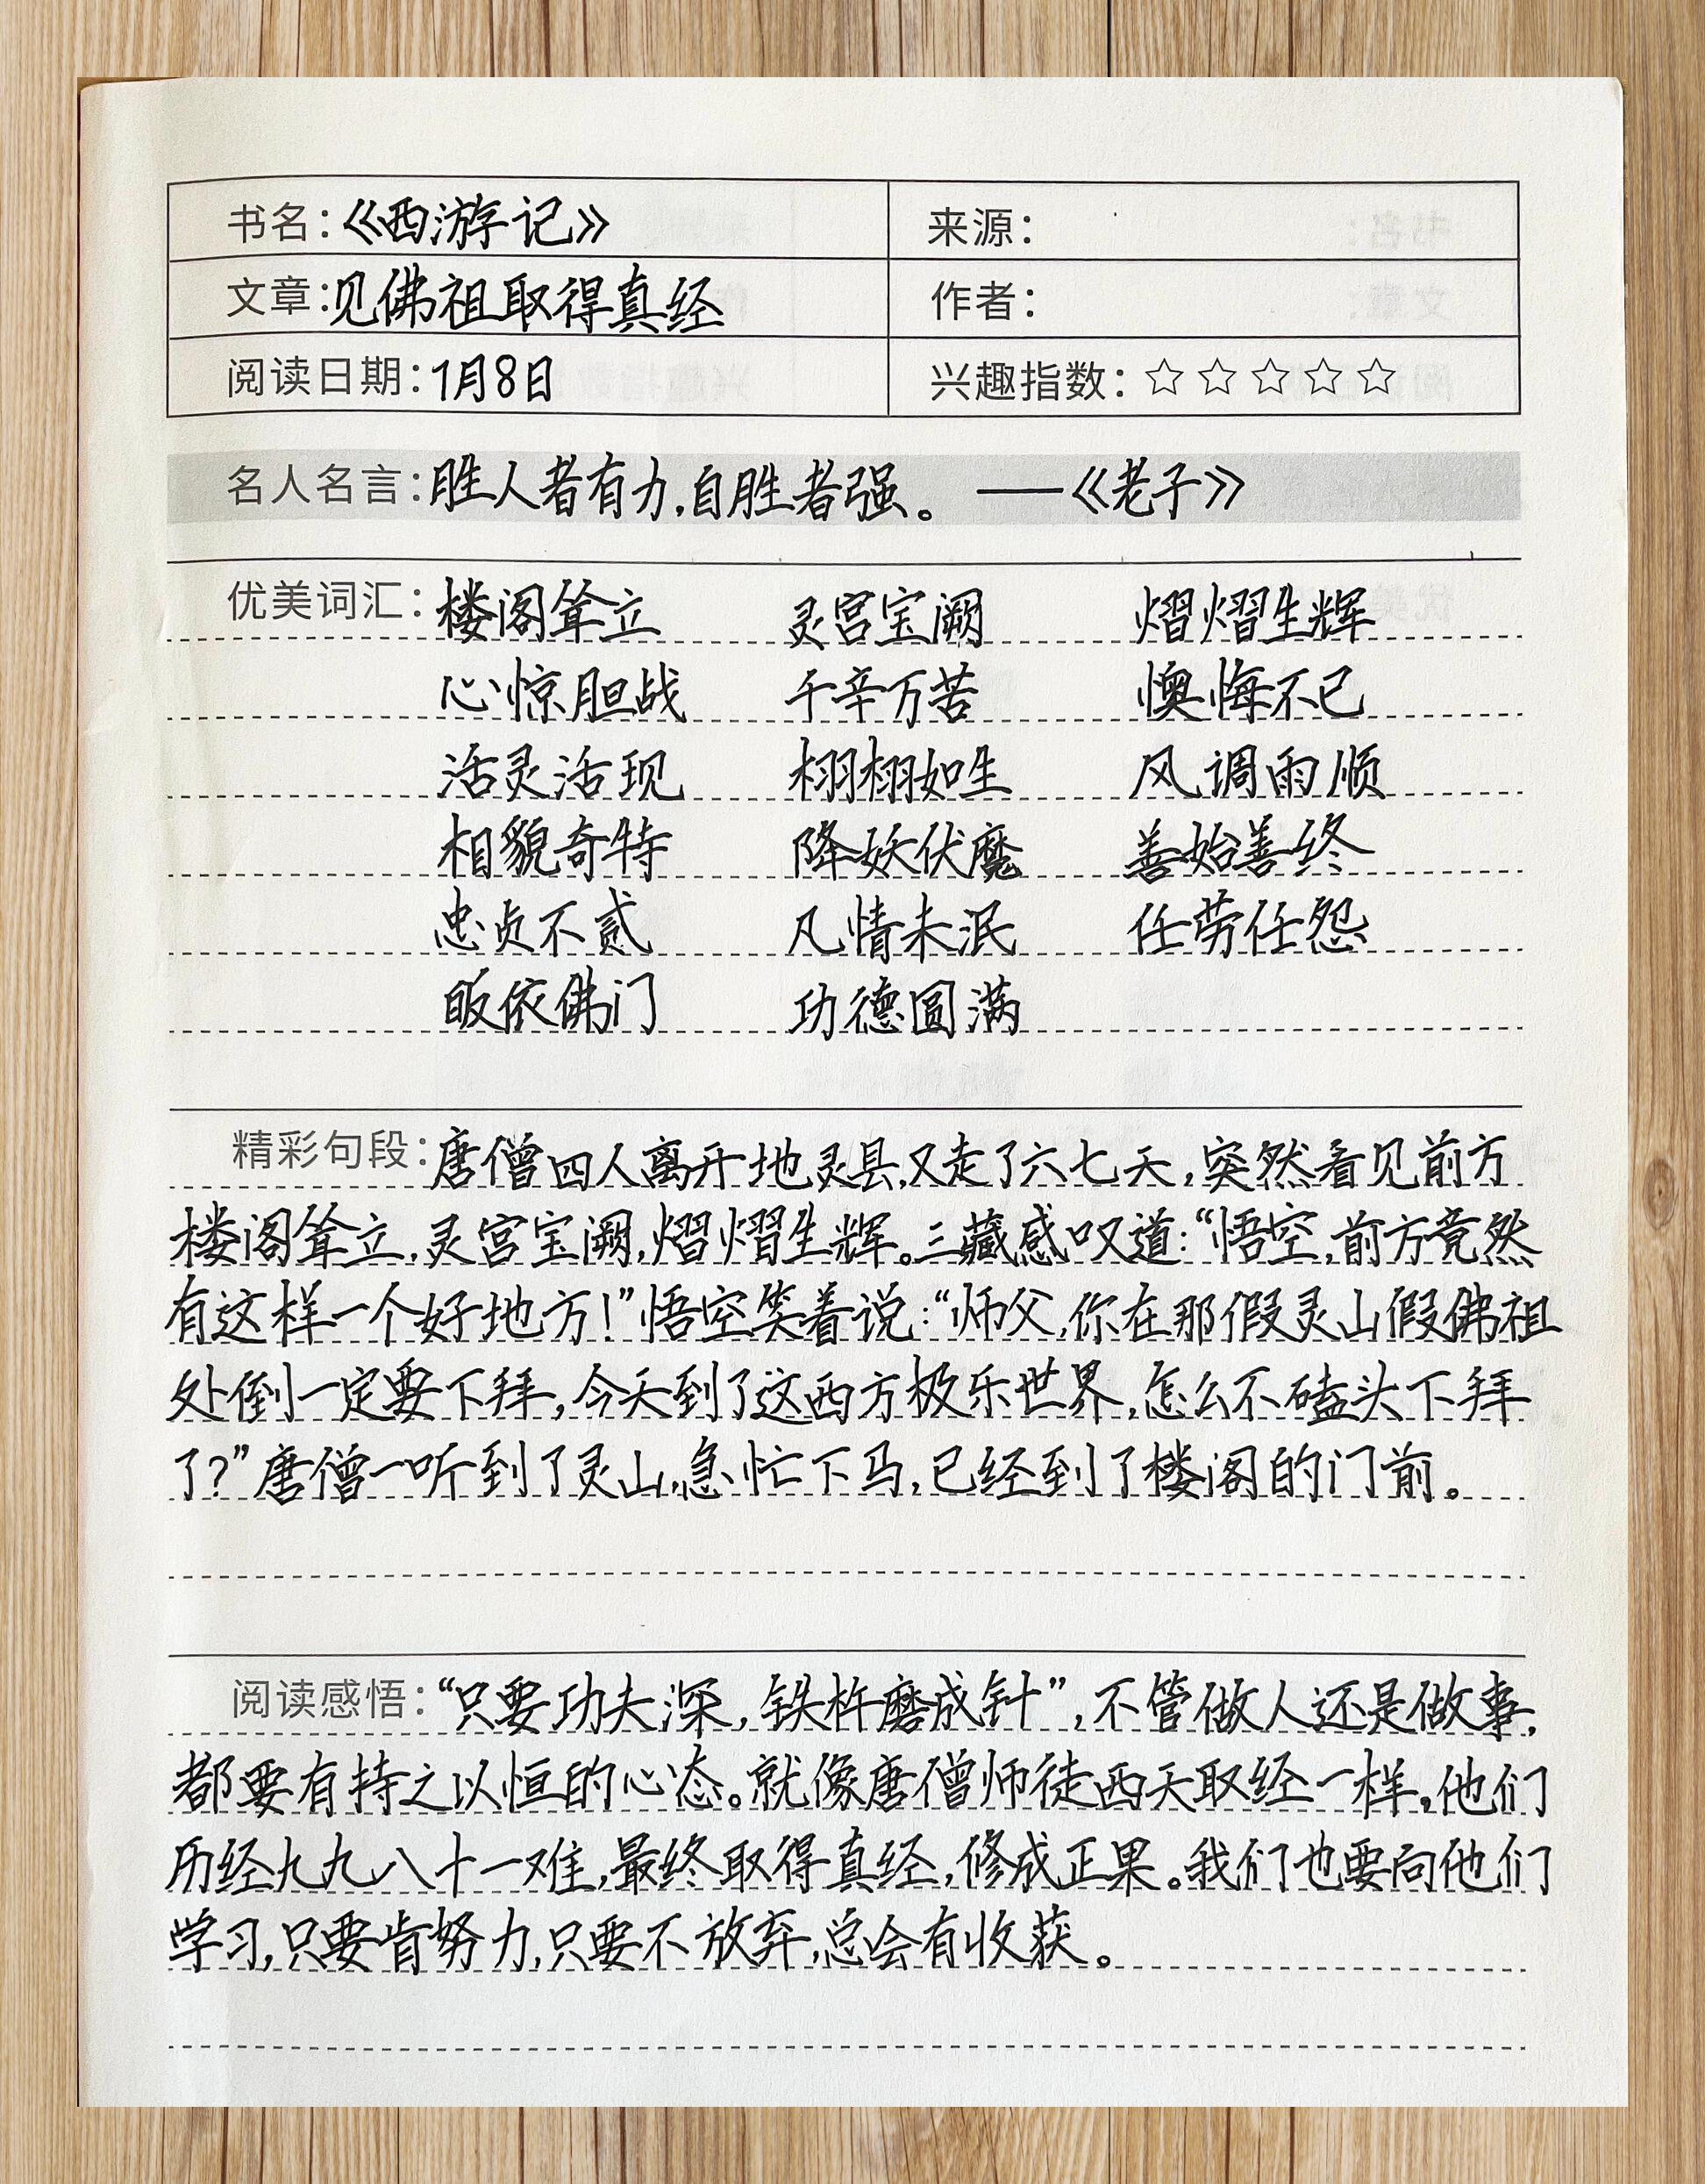 书名：《西游记》 来源：
文章：见佛祖取得真经 作者：
阅读日期：1月8日 兴趣指数：☆☆☆☆☆
名人名言：胜人者有力，自胜者强。——《老子》
优美词汇：楼阁耸立 灵宫宝阙 熠熠生辉
心惊胆战 千辛万苦 懊悔不已
活灵活现 栩栩如生 风调雨顺
相貌奇特 降妖伏魔 善始善终
忠贞不贰 凡情未泯 任劳任怨
皈依佛门 功德圆满
精彩句段：唐僧四人离开地灵县，又走了六七天，突然看见前方
楼阁耸立，灵宫宝阙，熠熠生辉。三藏感叹道：“悟空，前方竟然
有这样一个好地方！”悟空笑着说：“师父，你在那假灵山假佛祖
处倒一定要下拜，今天到了这西方极乐世界，怎么不磕头下拜
了？”唐僧一听到了灵山，急忙下马，已经到了楼阁的门前。
阅读感悟：“只要功夫深，铁杵磨成针”，不管做人还是做事，
都要有持之以恒的心态。就像唐僧师徒西天取经一样，他们
历经九九八十一难，最终取得真经，修成正果。我们也要向他们
学习，只要肯努力，只要不放弃，总会有收获。